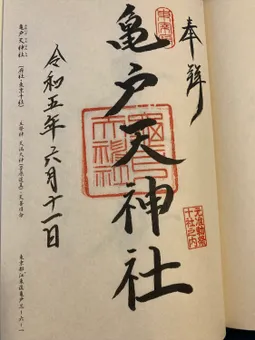 奉拝
元准勅祭
十社之内
亀戸天神社
令和五年六月十一日
亀戸天神社
[府社・東京十社]
東京都江東区亀戸三-六-一